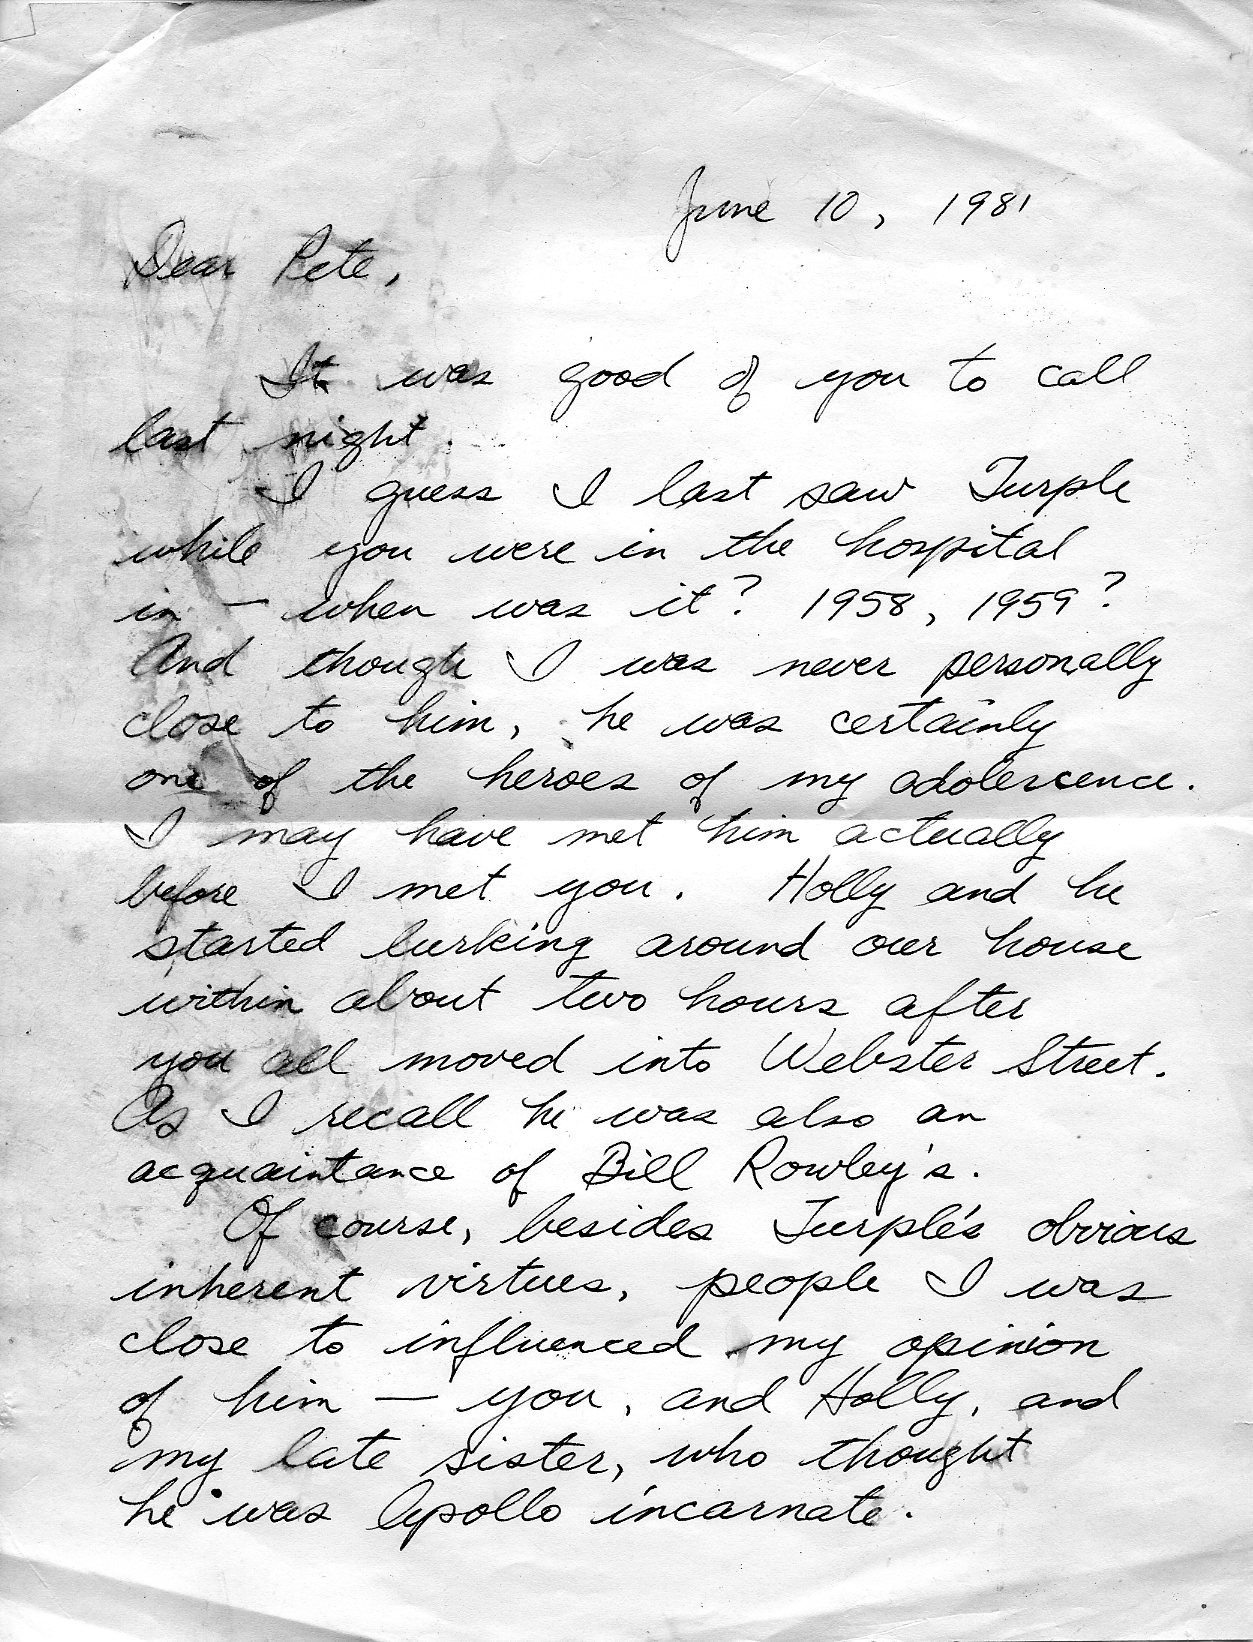 June 10, 1981
Dear Pete,
It was good of you to call
last night.
I guess I last saw Turple
while you were in the hospital
in — when was it? 1958, 1959?
And though I was never personally
close to him, he was certainly
one of the heroes of my adolescence.
I may have met him actually
before I met you. Holly and he
started lurking around our house
within about two hours after
you all moved into Webster Street.
As I recall he was also an
acquaintance of Bill Rowley's.
Of course, besides Turple's obvious
inherent virtues, people I was
close to influenced my opinion
of him — you, and Holly, and
my late sister, who thought
he was Apollo incarnate.